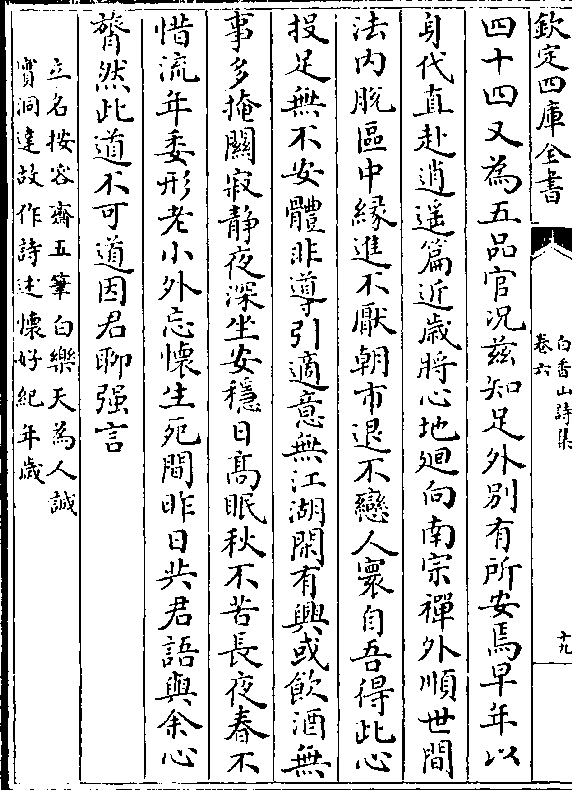 欽定四庫全書
白香山詩集
卷六
十九
四十四又為五品官况兹知足外别有所安焉早年以
身代直赴逍遥篇近歲將心地廻向南宗禪外順世間
法内脱區中緣進不厭朝市退不戀人寰自吾得此心
投足無不安體非導引適意無江湖閑有興或飲酒無
事多掩關寂静夜深坐安穩日髙眠秋不苦長夜春不
惜流年委形老小外忘懷生死間昨日共君語與余心
膂然此道不可道因君聊强言
立名按容齋五筆白樂天為人誠
實洞達故作詩述懷好紀年歲